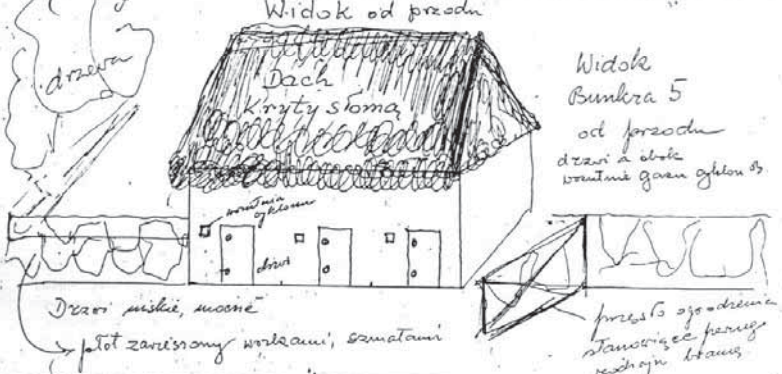 Widok od przodu
drzewa
Dach
Kryty słomą
Widok
Bunkra 5
od przodu
drzwi a obok
wrzutnie gazu cyklon B.
wrzutnia
cyklonu
drzwi
Drzwi niskie, mocne
płot zawieszony workami, szmatami
przęsło ogrodzenia
stanowiące pewnego
rodzaju bramę